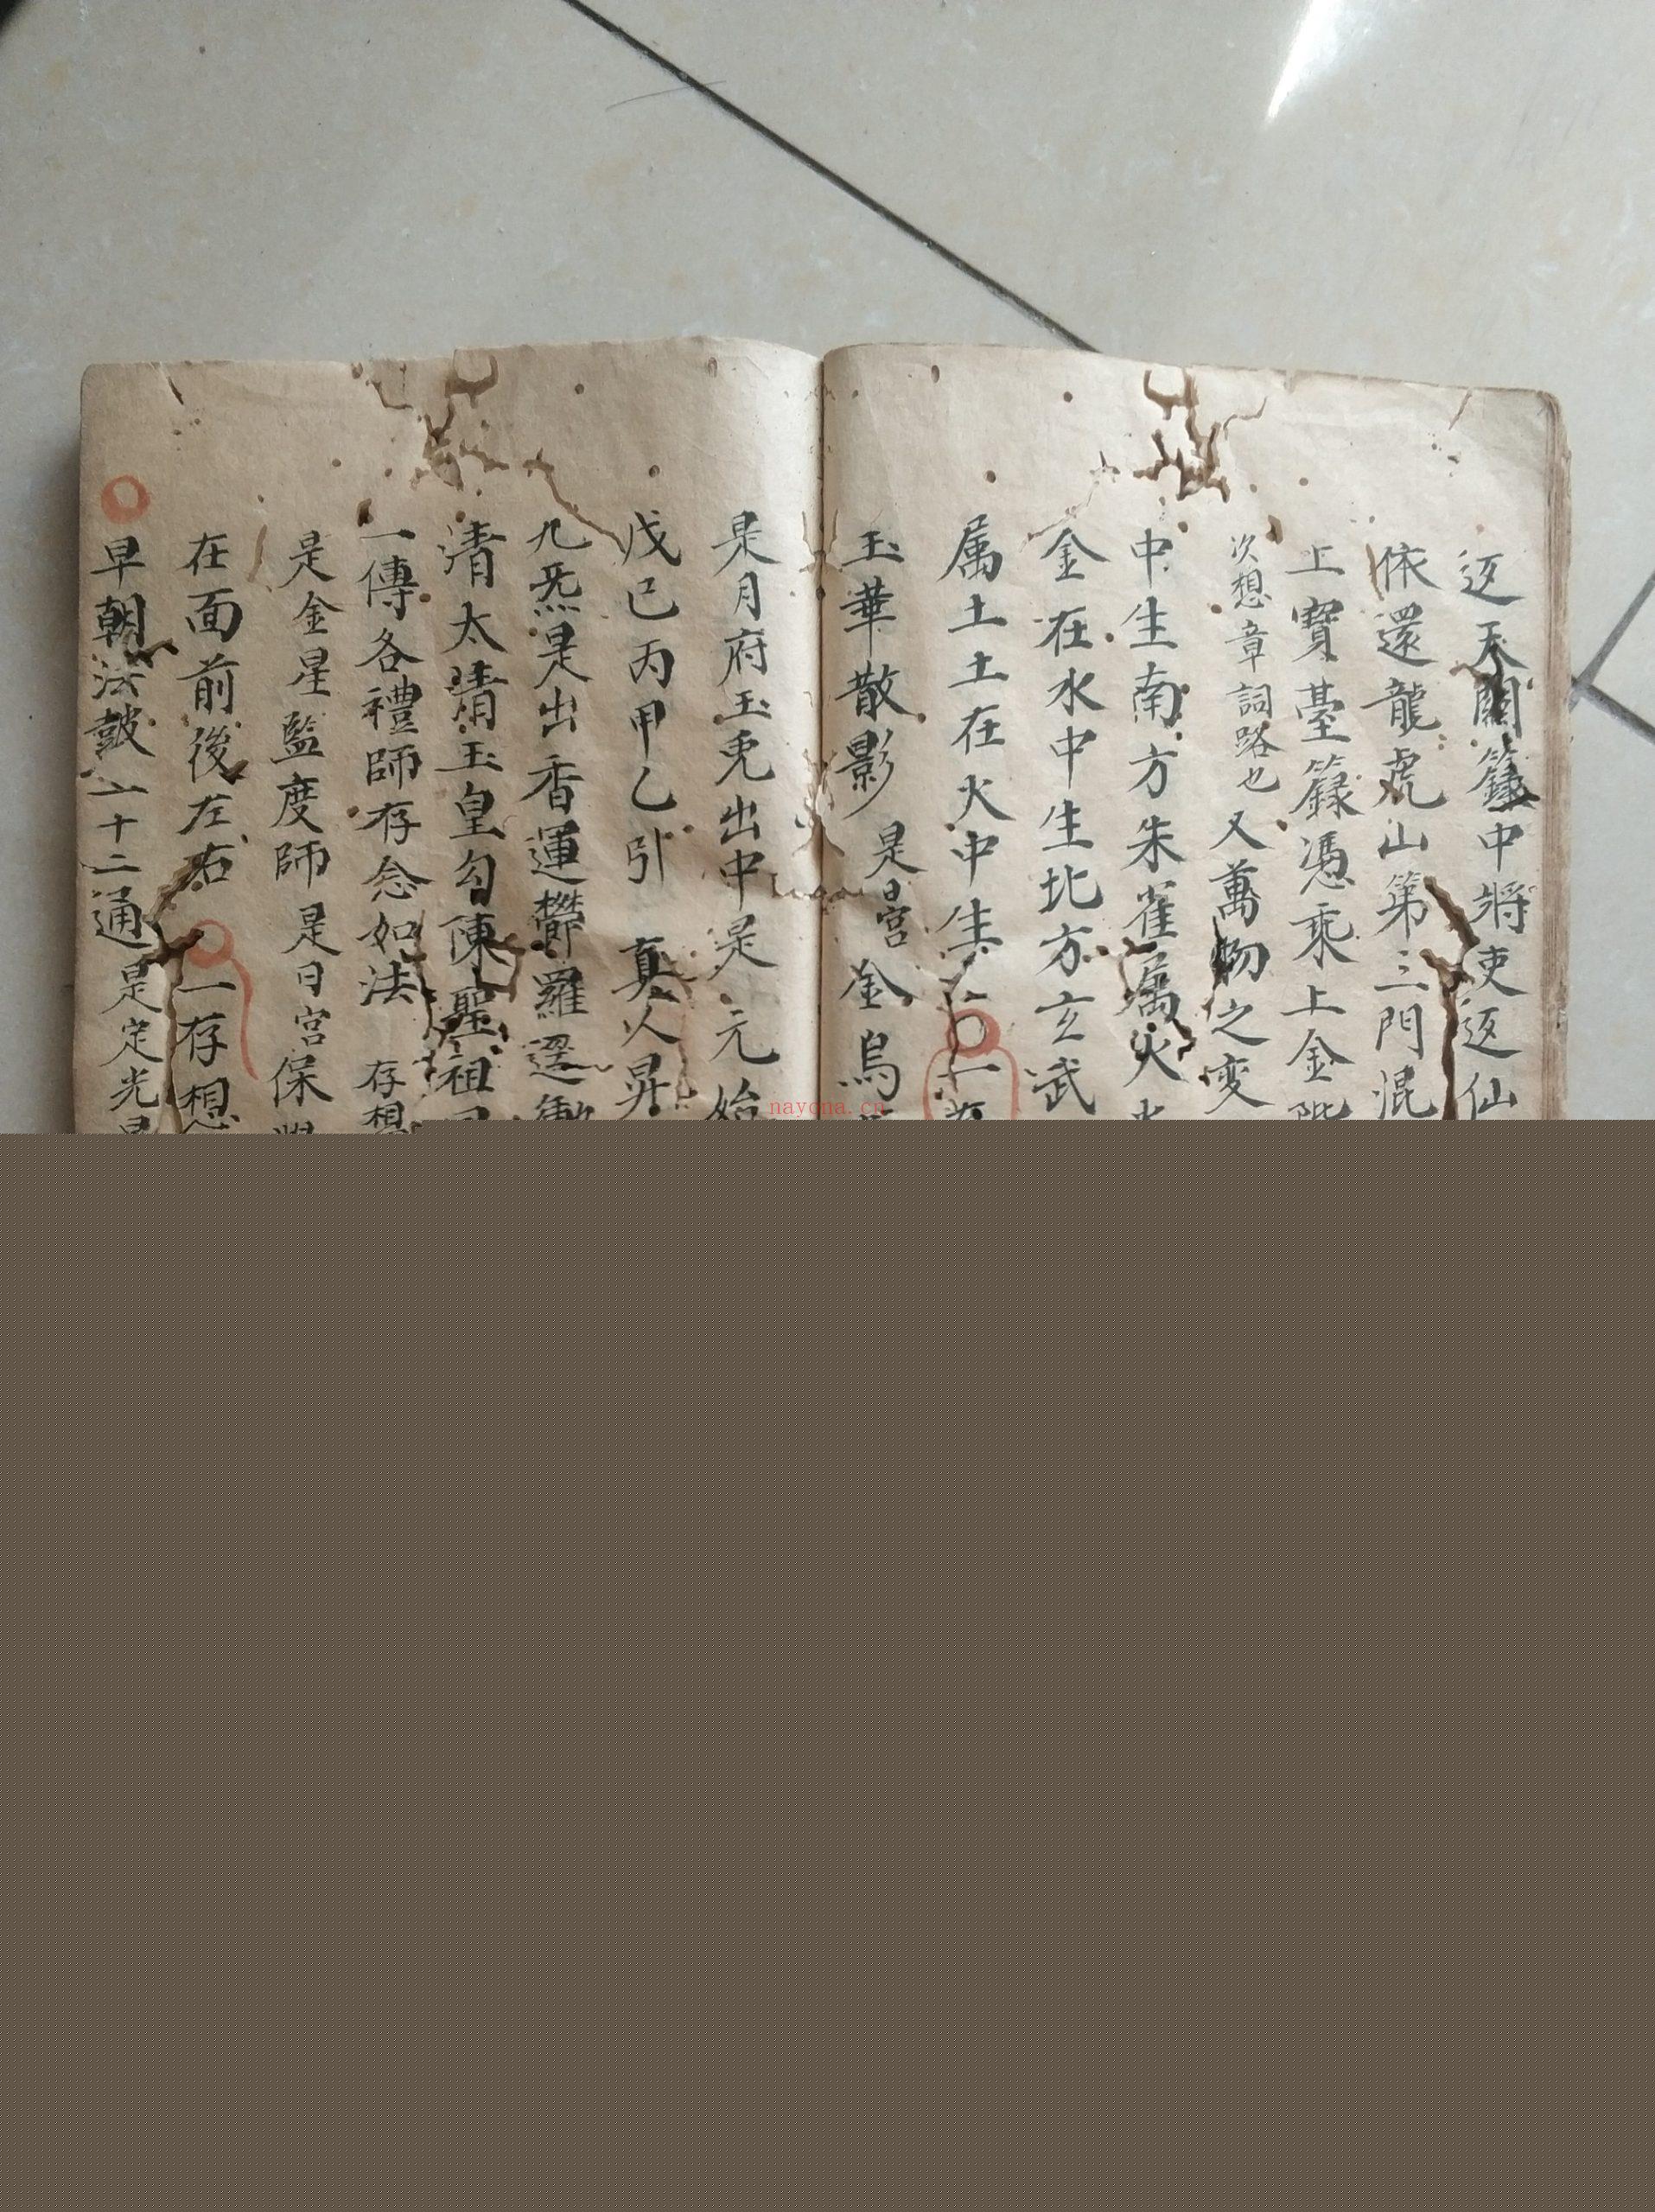 返天關籙中將吏返仙
依還龍虎山第三門混
上寶臺籙憑乘上金階
次想章詞路也又萬物之変
中生南方朱雀属火
金在水中生北方玄武
属土土在火中生一
玉華散影是日宮金烏
是月府玉兎出中是元始
戊己丙甲乙引真人昇
九炁是出香運欝羅
清太清玉皇勾陳聖祖
一傳各禮師存念如法存想
是金星監度師是日宮保
在面前後左右一存想
早朝法皷二十二通是定光
nayona.cn